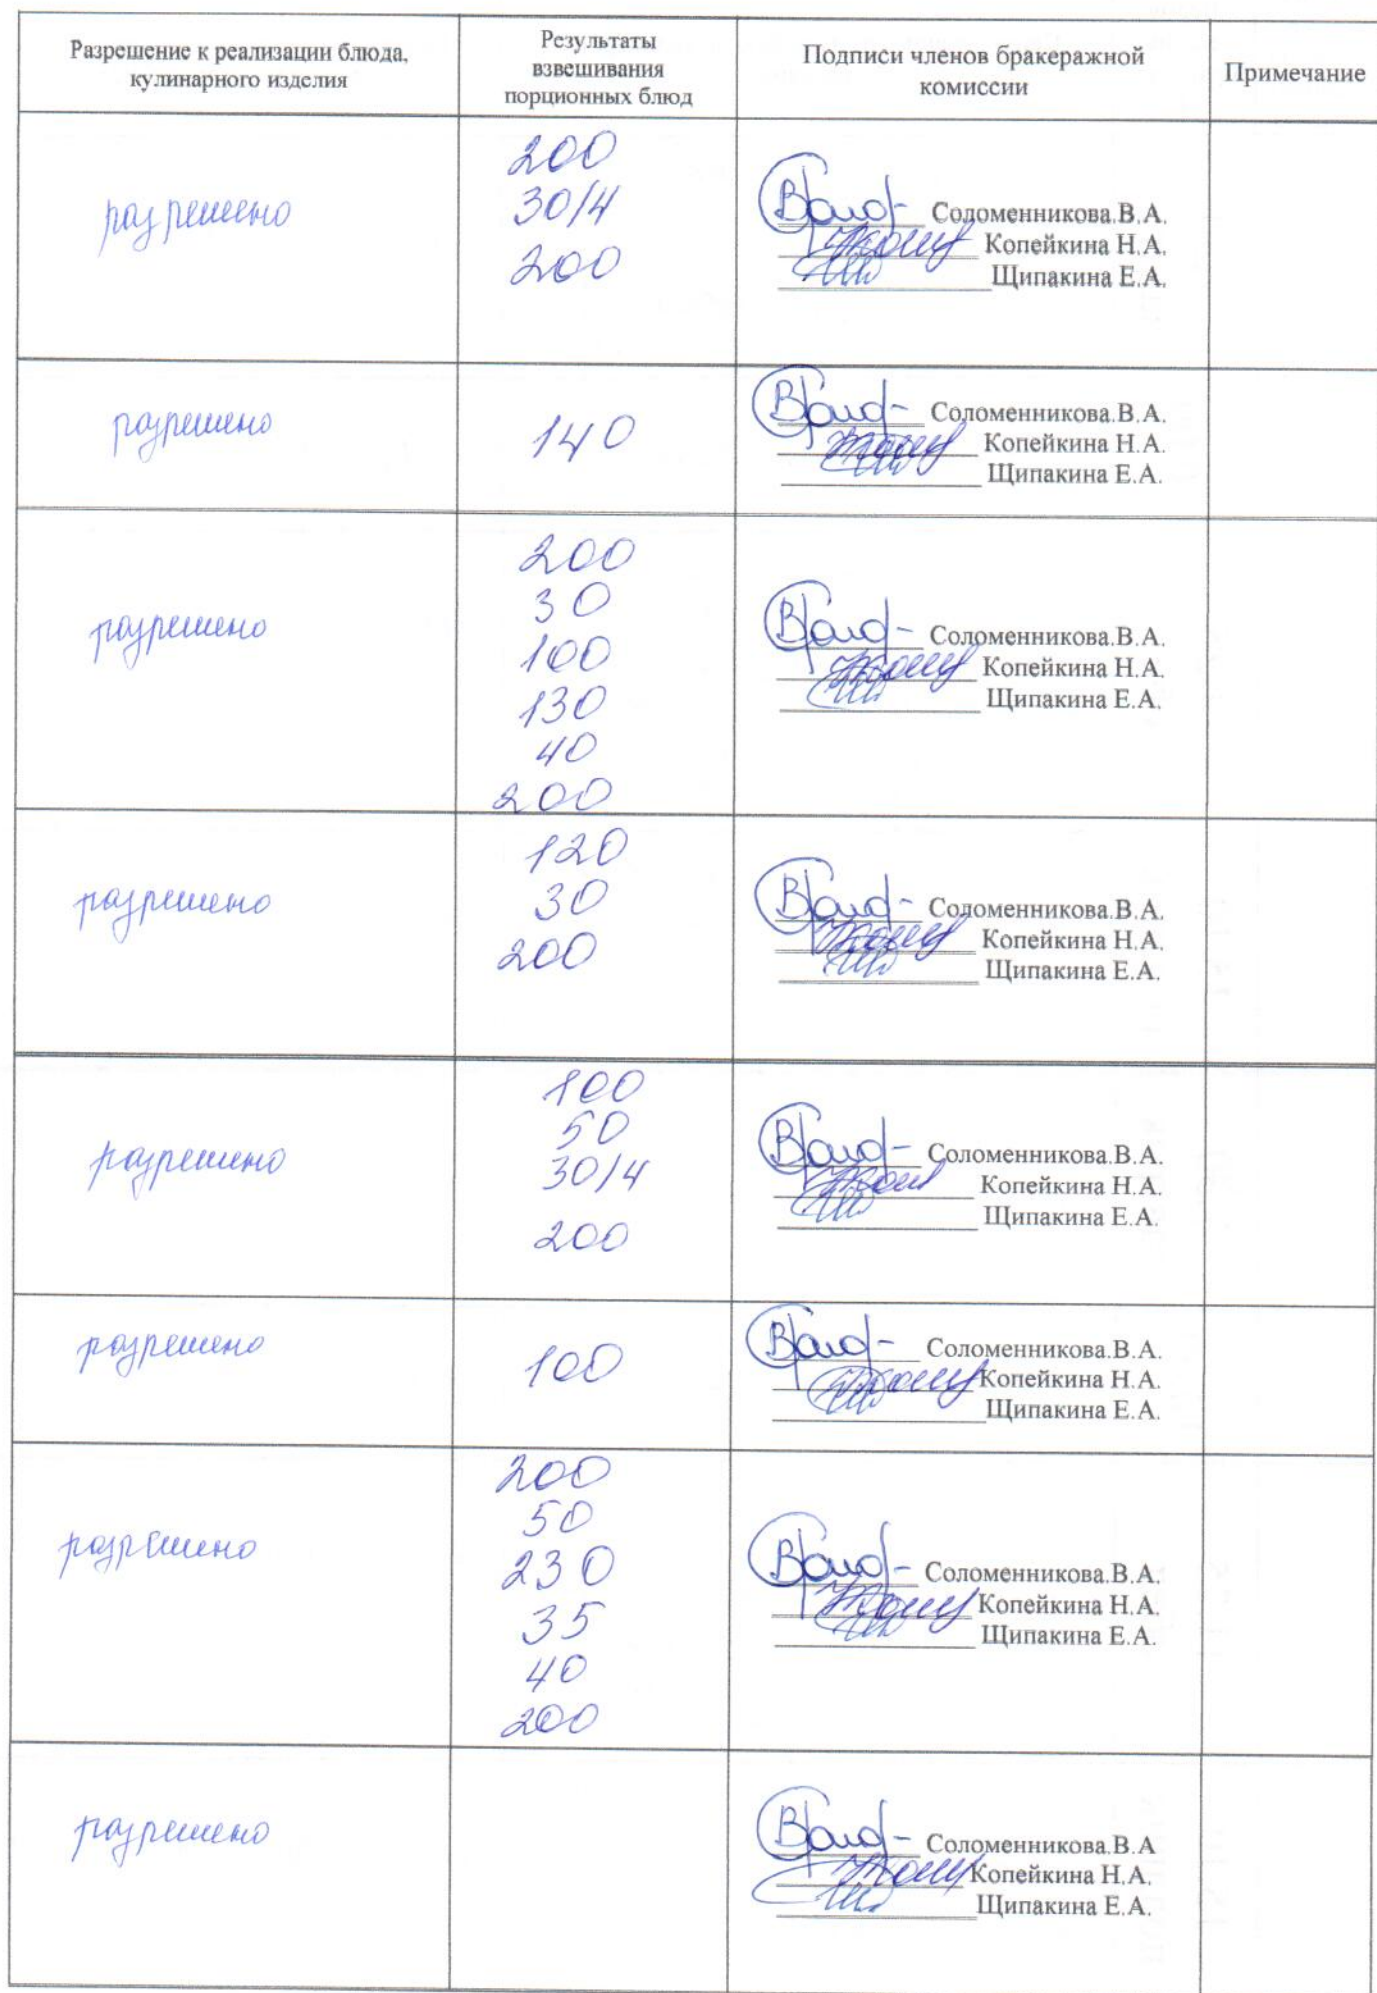 Разрешение к реализации блюда,
кулинарного изделия
Результаты
взвешивания
порционных блюд
Подписи членов бракеражной
комиссии
Примечание
разрешено
200
30/4
200
Соломенникова.В.А.
Копейкина Н.А.
Щипакина Е.А.
разрешено
140
Соломенникова.В.А.
Копейкина Н.А.
Щипакина Е.А.
разрешено
200
30
100
130
40
200
Соломенникова.В.А.
Копейкина Н.А.
Щипакина Е.А.
разрешено
120
30
200
Соломенникова.В.А.
Копейкина Н.А.
Щипакина Е.А.
разрешено
100
50
30/4
200
Соломенникова.В.А.
Копейкина Н.А.
Щипакина Е.А.
разрешено
100
Соломенникова.В.А.
Копейкина Н.А.
Щипакина Е.А.
разрешено
200
50
230
35
40
200
Соломенникова.В.А.
Копейкина Н.А.
Щипакина Е.А.
разрешено
Соломенникова.В.А
Копейкина Н.А.
Щипакина Е.А.